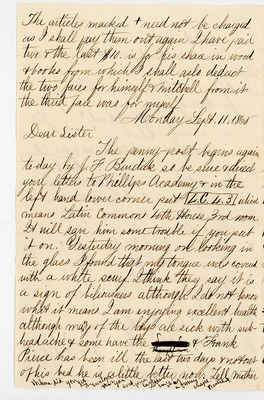 The articles marked + need not be charged
as I shall pay them out again I have paid
two + the last $10. is for his share in wood
& books from which I shall ask deduct
the two fares for himself & Mitchell from it
the third fare was for myself.
Monday Sept. 11, 1865
Dear Sister
The penny-post begins again
to-day by J. F. so be sure + direct
your letters to Phillips Academy + in the
left hand lower corner put L.C. 4.3 which
means Latin Commons 4th House, 3rd room.
It will save him some trouble if you put
it on. Yesterday morning on looking in
the glass I found that my tongue was covered
with a white scurf I think they say it is
a sign of biliousness although I do not know
what it means I am enjoying excellent health
although many of the boys are sick with sick
headache & some have the & Frank
Pierce has been ill the last two days & not out
of his bed he is a little better now. Tell mother